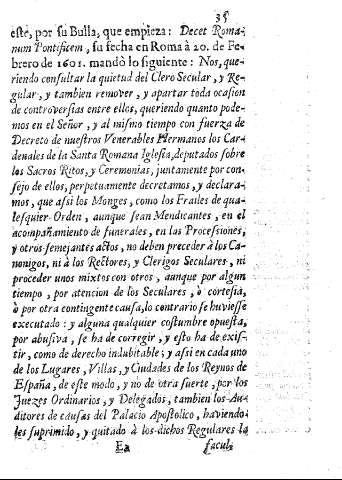 35
este, por su Bulla, que empieza: Decet Roma-
num Pontificem, su fecha en Roma à 20. de Fe-
brero de 1601. mandò lo siguiente: Nos, que-
riendo consultar la quietud del Clero Secular, y Re-
gular, y tambien remover, y apartar toda ocasion
de controversias entre ellos, queriendo quanto pode-
mos en el Señor, y al mismo tiempo con fuerza de
Decreto de nuestros Venerables Hermanos los Car-
denales de la Santa Romana Iglesia, deputados sobre
los Sacros Ritos, y Ceremonias, juntamente por con-
sejo de ellos, perpetuamente decretamos, y declara-
mos, que assi los Monges, como los Frailes de qua-
lesquier Orden, aunque sean Mendicantes, en el
acompañamiento de funerales, en las Procesiones,
y otros semejantes actos, no deben preceder à los Ca-
nonigos, ni à los Rectores, y Clerigos Seculares, ni
proceder unos mixtos con otros, aunque por algun
tiempo, por atencion de los Seculares, ò cortesia,
ò por otra contingente causa, lo contrario se huviesse
executado: y alguna qualquier costumbre opuesta,
por abusiva, se ha de corregir, y esto ha de exis-
tir, como de derecho indubitable; y assi en cada uno
de los Lugares, Villas, y Ciudades de los Reynos de
España, de este modo, y no de otra fuerte, por los
Juezes Ordinarios, y Delegados, tambien los Au-
ditores de causas del Palacio Apostolico, haviendo
les suprimido, y quitado à los dichos Regulares la
Ea facul-